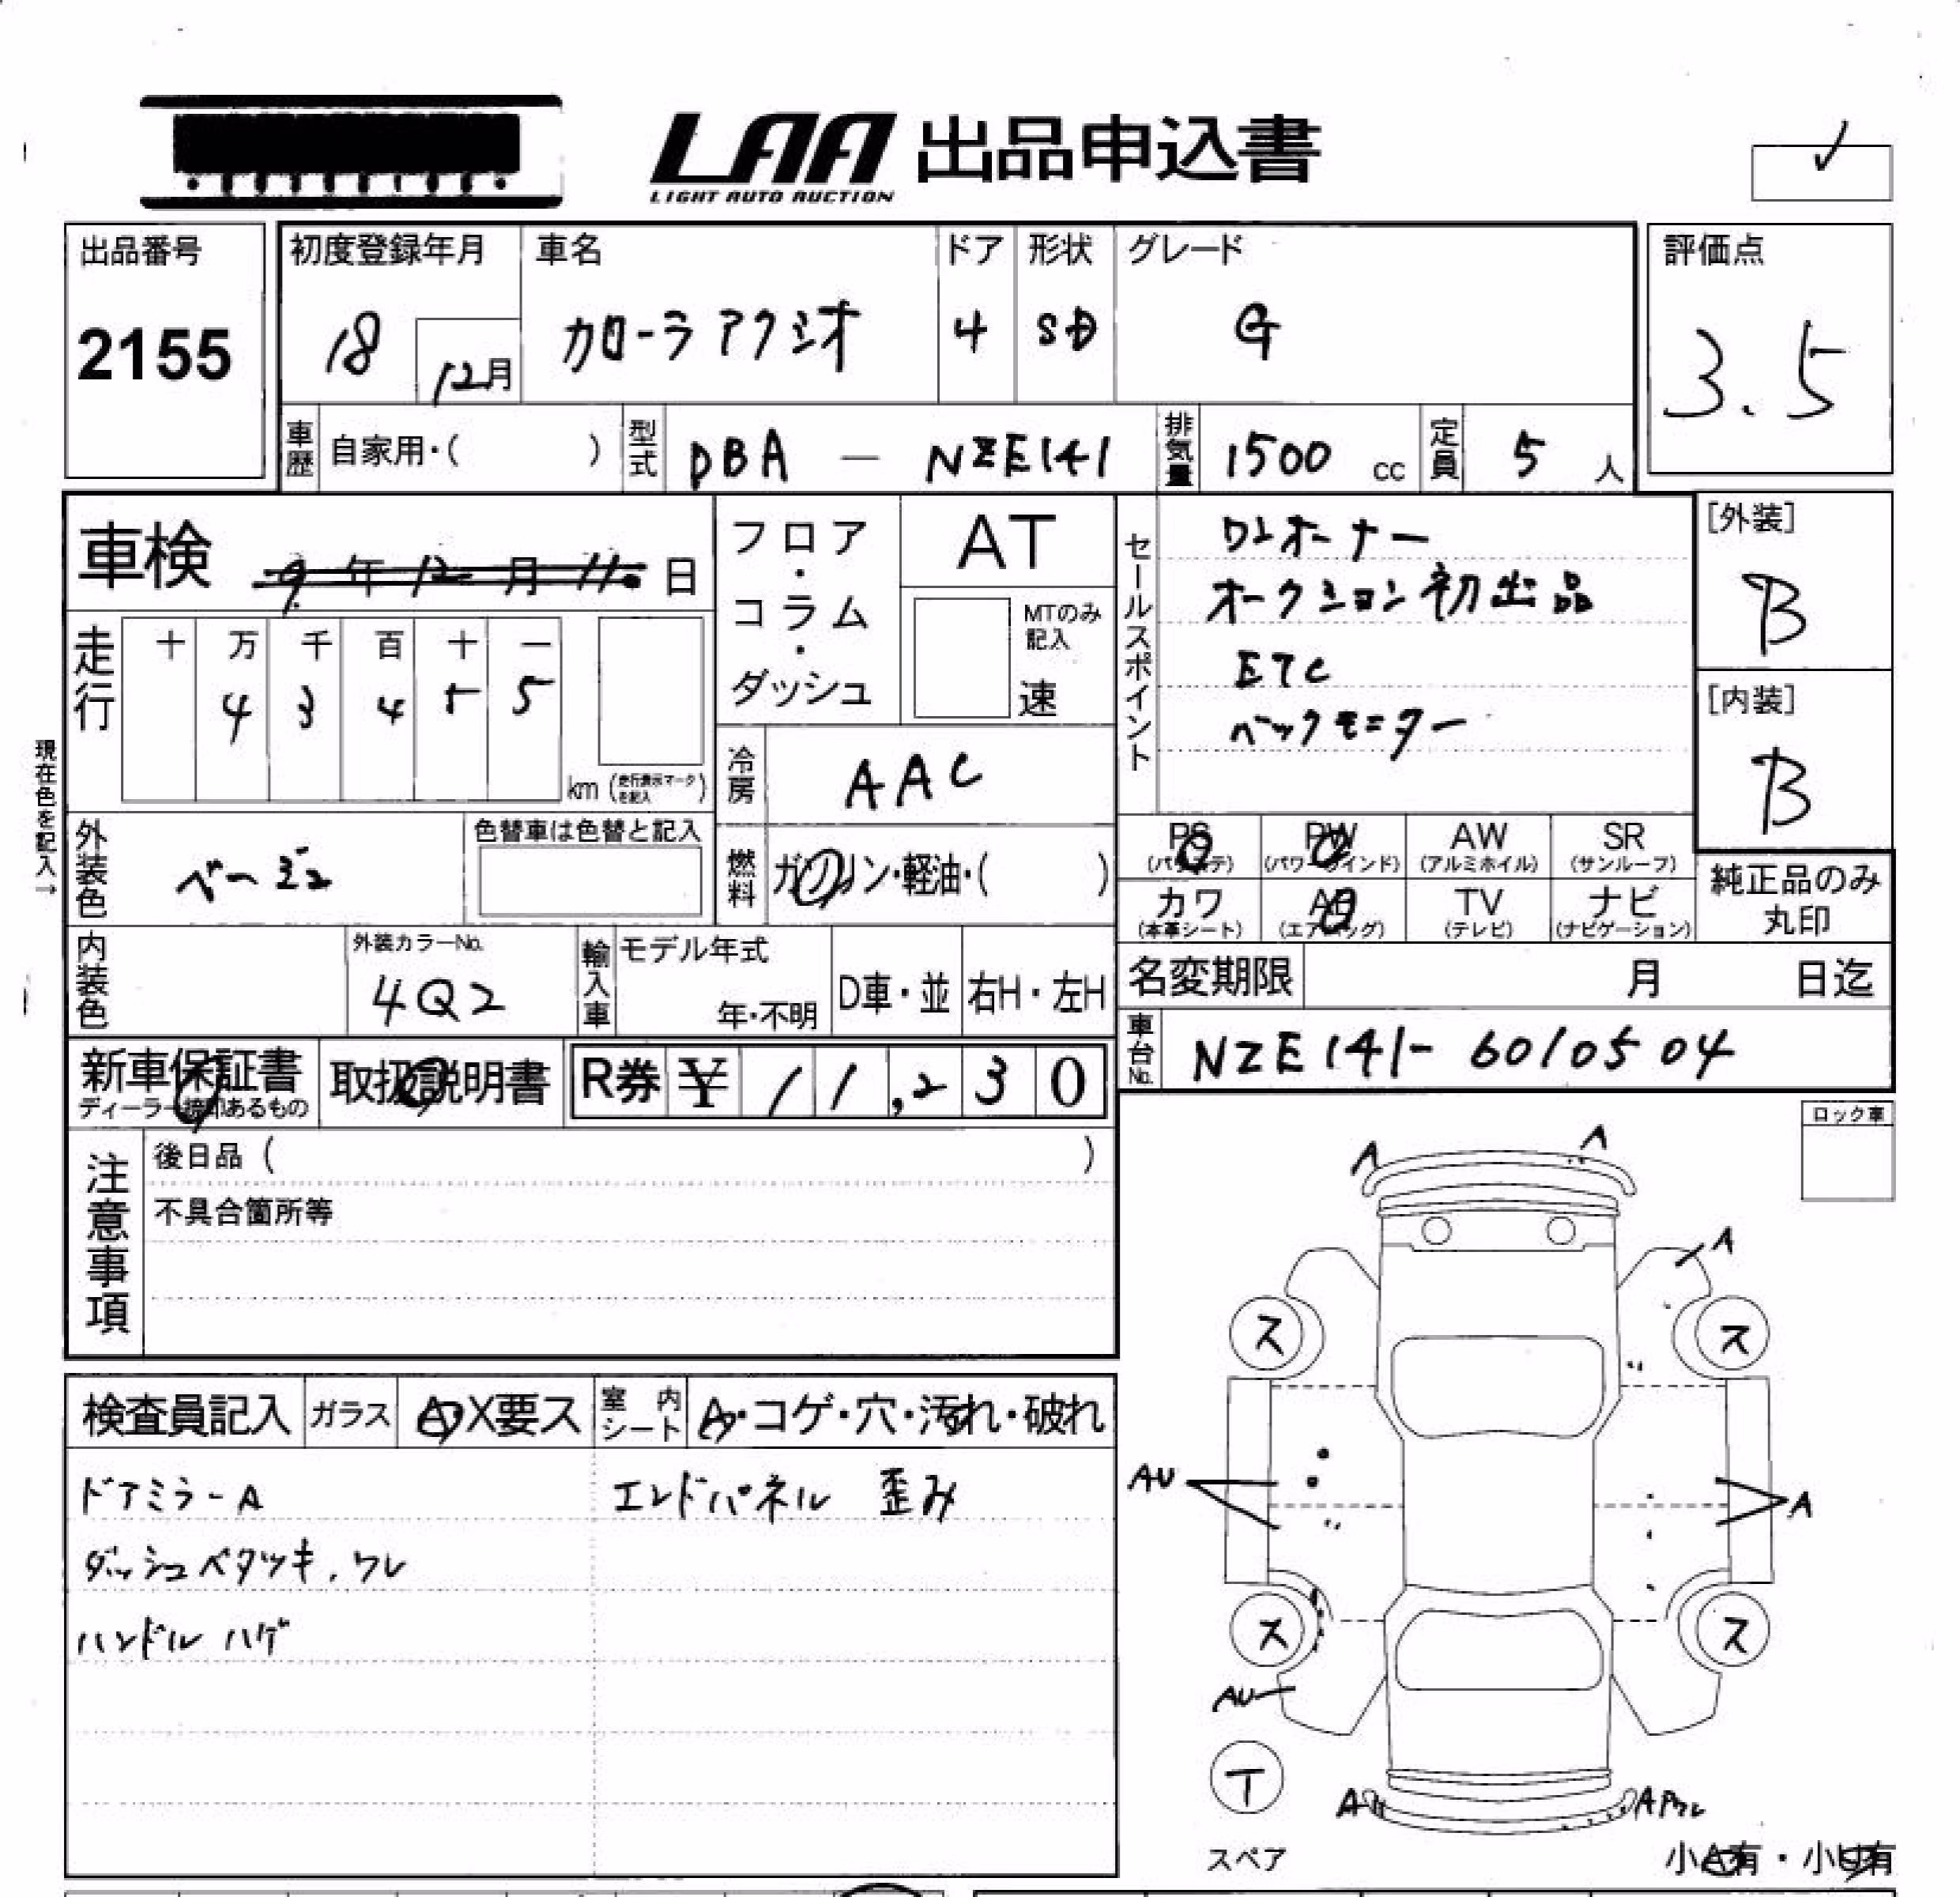 LAA 出品申込書
LIGHT AUTO AUCTION
✓
出品番号
2155
初度登録年月
18
12月
車名
カローラアクシオ
ドア
4
形状
SD
グレード
G
評価点
3.5
車歴
自家用・( )
型式
DBA — NZE141
排気量
1500 cc
定員
5 人
車検
9年12月11日
走行
十 万 千 百 十 一
4 3 4 5 5
km (走行表示マークを記入)
現在色を記入→
フロア・コラム・ダッシュ
AT
MTのみ記入
速
冷房
AAC
燃料
ガソリン・軽油・( )
セールスポイント
ワンオーナー
オークション初出品
ETC
バックモニター
[外装]
B
[内装]
B
PS (パワステ)
PW (パワーウインド)
AW (アルミホイル)
SR (サンルーフ)
カワ (本革シート)
AB (エアバッグ)
TV (テレビ)
ナビ (ナビゲーション)
純正品のみ丸印
外装色
ベージュ
色替車は色替と記入
内装色
外装カラーNo.
4Q2
輸入車
モデル年式
年・不明
D車・並
右H・左H
名変期限
月 日迄
車台No.
NZE141-6010504
新車保証書
ディーラー捺印あるもの
取扱説明書
R券 ¥ 11,230
注意事項
後日品 ( )
不具合箇所等
検査員記入
ガラス
A・X要ス
室内シート
A・コゲ・穴・汚れ・破れ
ドアミラーA
ダッシュベタツキ.ワレ
ハンドル ハゲ
エンドパネル 歪み
ロック車
A
A
A
ス
ス
AU
A
ス
ス
AU
T
スペア
A
APワレ
小A有・小U有